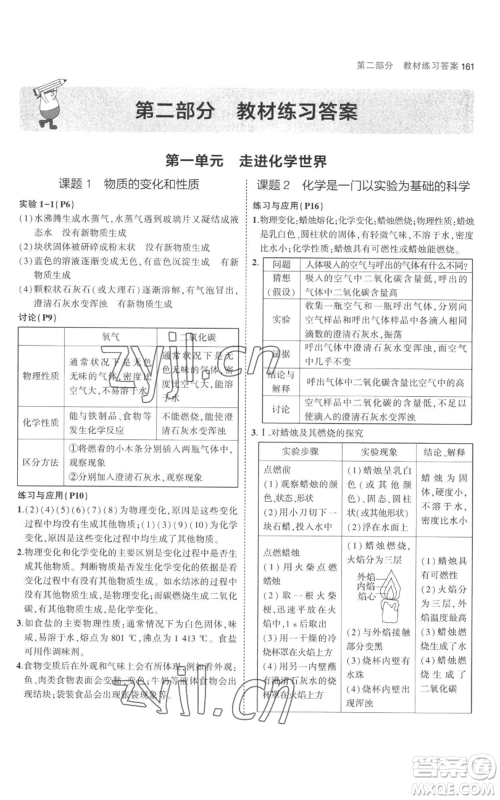 第二部分　教材练习答案 161
第二部分　教材练习答案
第一单元　走进化学世界
课题 1　物质的变化和性质
实验 1-1(P6)
(1)水沸腾生成水蒸气,水蒸气遇玻璃片又凝结成液
体　没有新物质生成
(2)块状固体被研碎成粉末状　没有新物质生成
(3)蓝色的溶液逐渐变浑浊　有新物质生成
(4)颗粒状石灰石(或大理石)逐渐溶解,有气泡冒出,
澄清石灰水变浑浊　有新物质生成
讨论(P9)
氧气　二氧化碳
物理性质
通常状况下是无
色无味的气体,密度
比空气大,不易溶
于水
通常状况下是无
色无味的气体,密
度比空气大,能溶
于水
化学性质
能与铁制品、食物等
发生化学反应
不可燃烧,能使澄
清石灰水变浑浊
区分方法
①将燃着的小木条分别插入两瓶气体中,
观察现象
②分别加入澄清石灰水,观察现象
练习与应用(P10)
1.(2)(4)(5)(6)(7)(8)是物理变化,原因是这些变化
过程中均没有生成其他物质。(1)(3)是化学变化,
原因是这些变化过程中生成了其他物质。
2.物理变化和化学变化的主要区别是变化中是否有
其他物质生成。判断物质的变化时,有其他物质生
成的变化是化学变化,没有生成其他物质的变化是
物理变化。如水结冰的过程中没有生成其他物质,
因此是物理变化,而碳燃烧的过程中生成二氧化
碳,因此是化学变化。
3.如食盐的主要性质:通常情况下为白色固体,味
咸,易溶于水,熔点为 801 ℃,沸点为 1 413 ℃。食盐
可作用调味剂。
4.食物变质后在外观和气味上会有异常现象,例如:
鱼、肉类食物会变色、变臭;牛奶或其他饮料中会
出现结块;袋装食品会出现胀袋现象等。
课题 2　化学是一门以实验为基础的科学
练习与应用(P16)
1.物理变化:蜡烛熔化;化学变化:蜡烛燃烧;物理性质:蜡烛
是乳白色、圆柱形固体,密度比水小,难溶于水,质地较
软;化学性质:蜡烛能燃烧。
2.
问题　人体吸入的空气与呼出的气体有什么不同?
猜想
(假设)
呼出的气体与吸入的空气相比,二氧化碳
含量高
实验
收集一瓶空气和一瓶呼出的气体,分别向空
气样品和呼出气体样品中滴入相同滴数的澄
清石灰水,振荡
证据　呼出气体中澄清石灰水变浑浊
结论与
解释
呼出气体中二氧化碳含量比空气中的高
讨论　二氧化碳能使澄清石灰水变浑浊
3.Ⅰ.对蜡烛及其燃烧的探究
实验步骤　实验现象　结论
点燃前
(1)观察蜡烛的颜
色、状态、形状
(2)用小刀切下一
块石蜡,放入水中
(1)蜡烛呈乳白
色、固态、圆柱状
(或其他形状)
(2)浮在水面上
蜡烛为固
体,硬度小,
不溶于水,
密度比水小
点燃蜡烛
(1)用火柴点燃
蜡烛
(2)取一根火柴
梗,迅速平放入火
焰中
(3)用一个干燥的
冷烧杯罩在火焰
上方
(4)用一个蘸有澄
清石灰水的冷烧
杯罩在火焰上方
(1)蜡烛燃烧,火
焰分为三层
外焰
内焰
焰心
(2)与外焰接触部
分变黑
(3)烧杯内壁有
水珠
(4)烧杯内壁出
现浑浊
(1)蜡烛火
焰分为三
层,外焰温
度最高
(2)蜡烛燃
烧生成了
二氧化碳
zyjl.cn
zyjl.cn